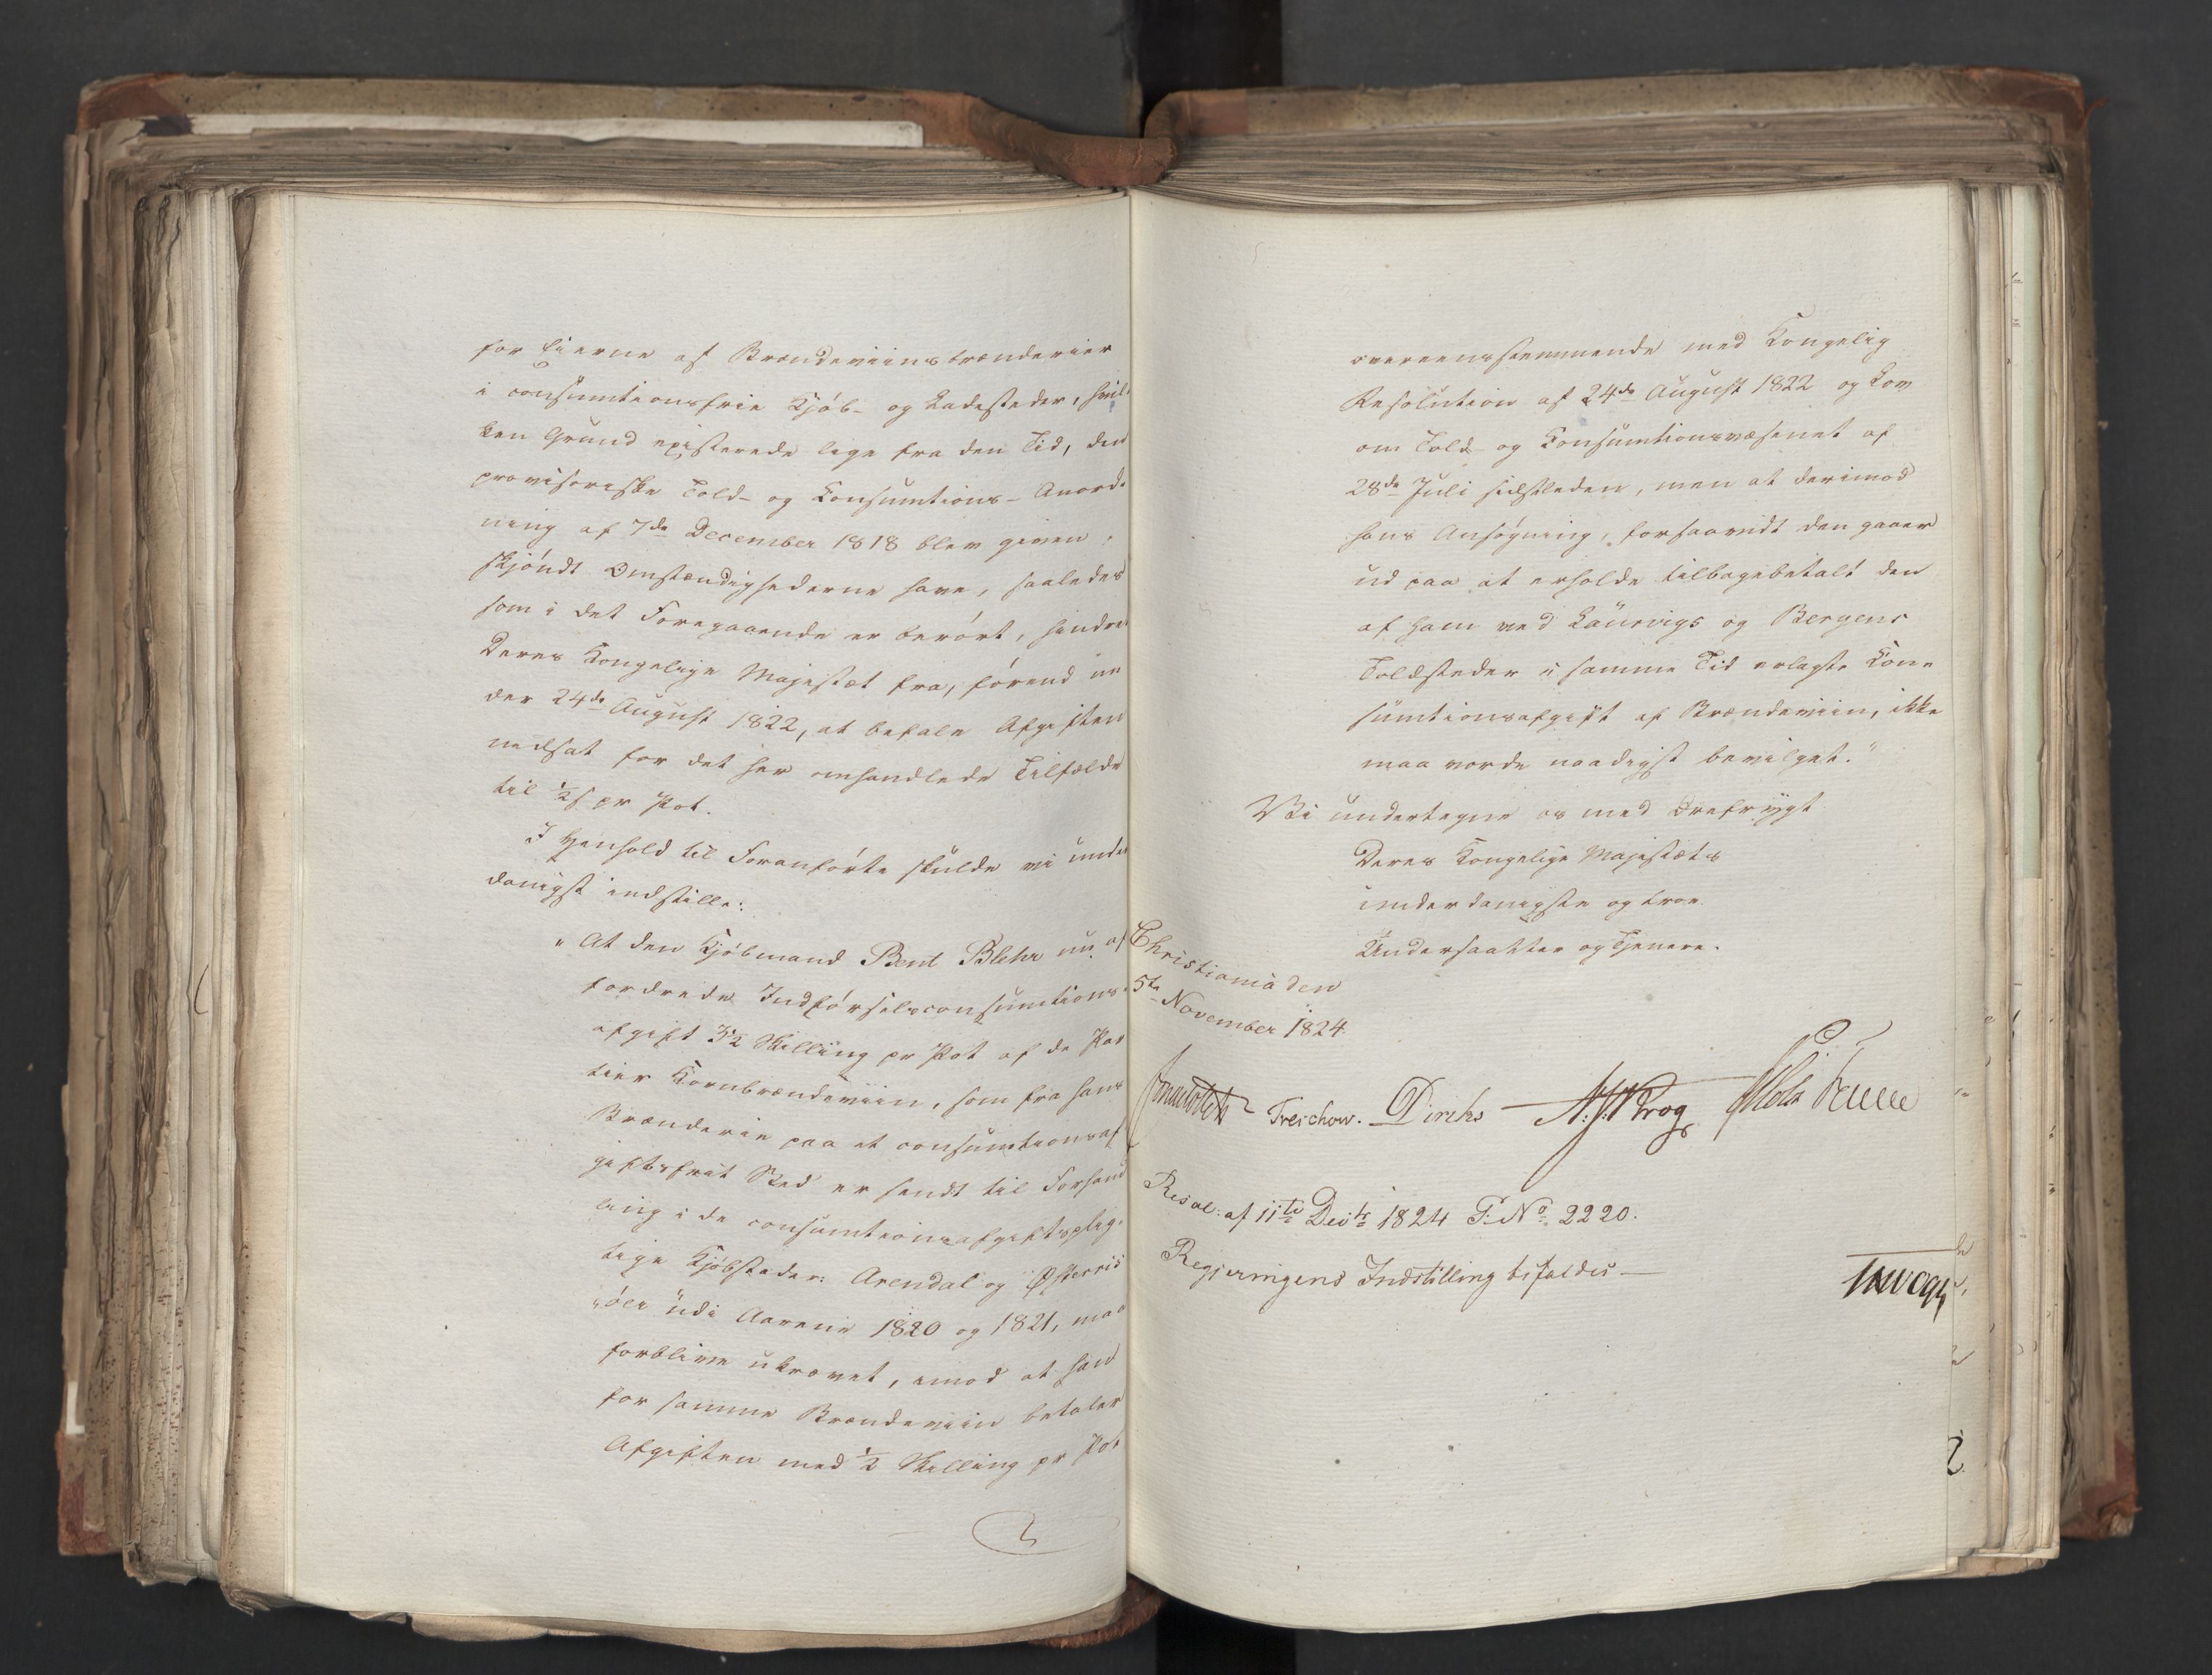 for Eierne af Brændeviinsbrænderier
i consumtionsfrie Kjøb- og Ladesteder, hvil-
ken Grund existerede lige fra den Tid, den
provisoriske Told- og Consumtions-Anord-
ning af 7de December 1818 blev given,
skjøndt Omstændighederne have, saaledes
som i det Foregaaende er berørt, hindret
Deres Kongelige Majestæt fra, førend un-
der 24de August 1822, at befale Afgiften
nedsat for det her omhandlede Tilfælde
til ½ s pr Pot.
I Henhold til Foranførte skulde vi under
danigst indstille:
"At den Kjøbmand Bent Blehr nu af
fordrede Indførselsconsumtions-
afgift 3½ Skilling pr Pot af de Par
tier Kornbrændeviin, som fra hans
Brænderie paa et consumtionsaf
giftsfrit Sted er sendt til Forhand
ling i de consumtionsafgiftsplig-
tige Kjøbstæder: Arendal og Østerriis
øer udi Aarene 1820 og 1821, maa
forblive ukrævet, imod at han
for samme Brændeviin betaler
Afgiften med ½ Skilling pr Pot
overeensstemmende med Kongelig
Resolution af 24de August 1822 og Lov
om Told- og Consumtionsvæsenet af
28de Juli sidstleden, men at derimod
hans Ansøgning, forsaavidt den gaaer
ud paa at erholde tilbagebetalt den
af ham ved Laurvigs og Bergens
Toldsteder i samme Tid erlagte Con-
sumtionsafgift af Brændeviin, ikke
maa vorde naadigst bevilget."
Vi undertegne os med Ærefrygt
Deres Kongelige Majestæts
underdanigste og troe
Undersaatter og Tjenere.
Christiania den
5te November 1824.
Treschow. Diriks Krog
Resol: af 11te Decbr 1824 P. No 2220.
Regjeringens Indstilling bifaldes